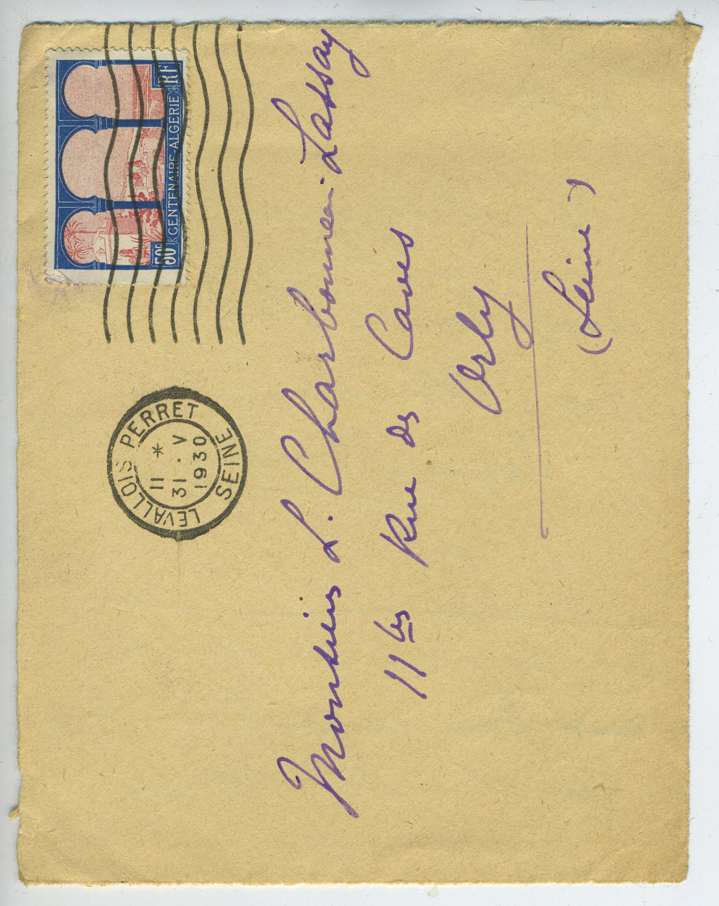 RF
CENTENAIRE-ALGERIE
50c
LEVALLOIS PERRET
11 *
31 . V
1930
SEINE
Monsieur L. Charbonneau-Lassay
11 bis Rue des Caves
Orly
(Seine)